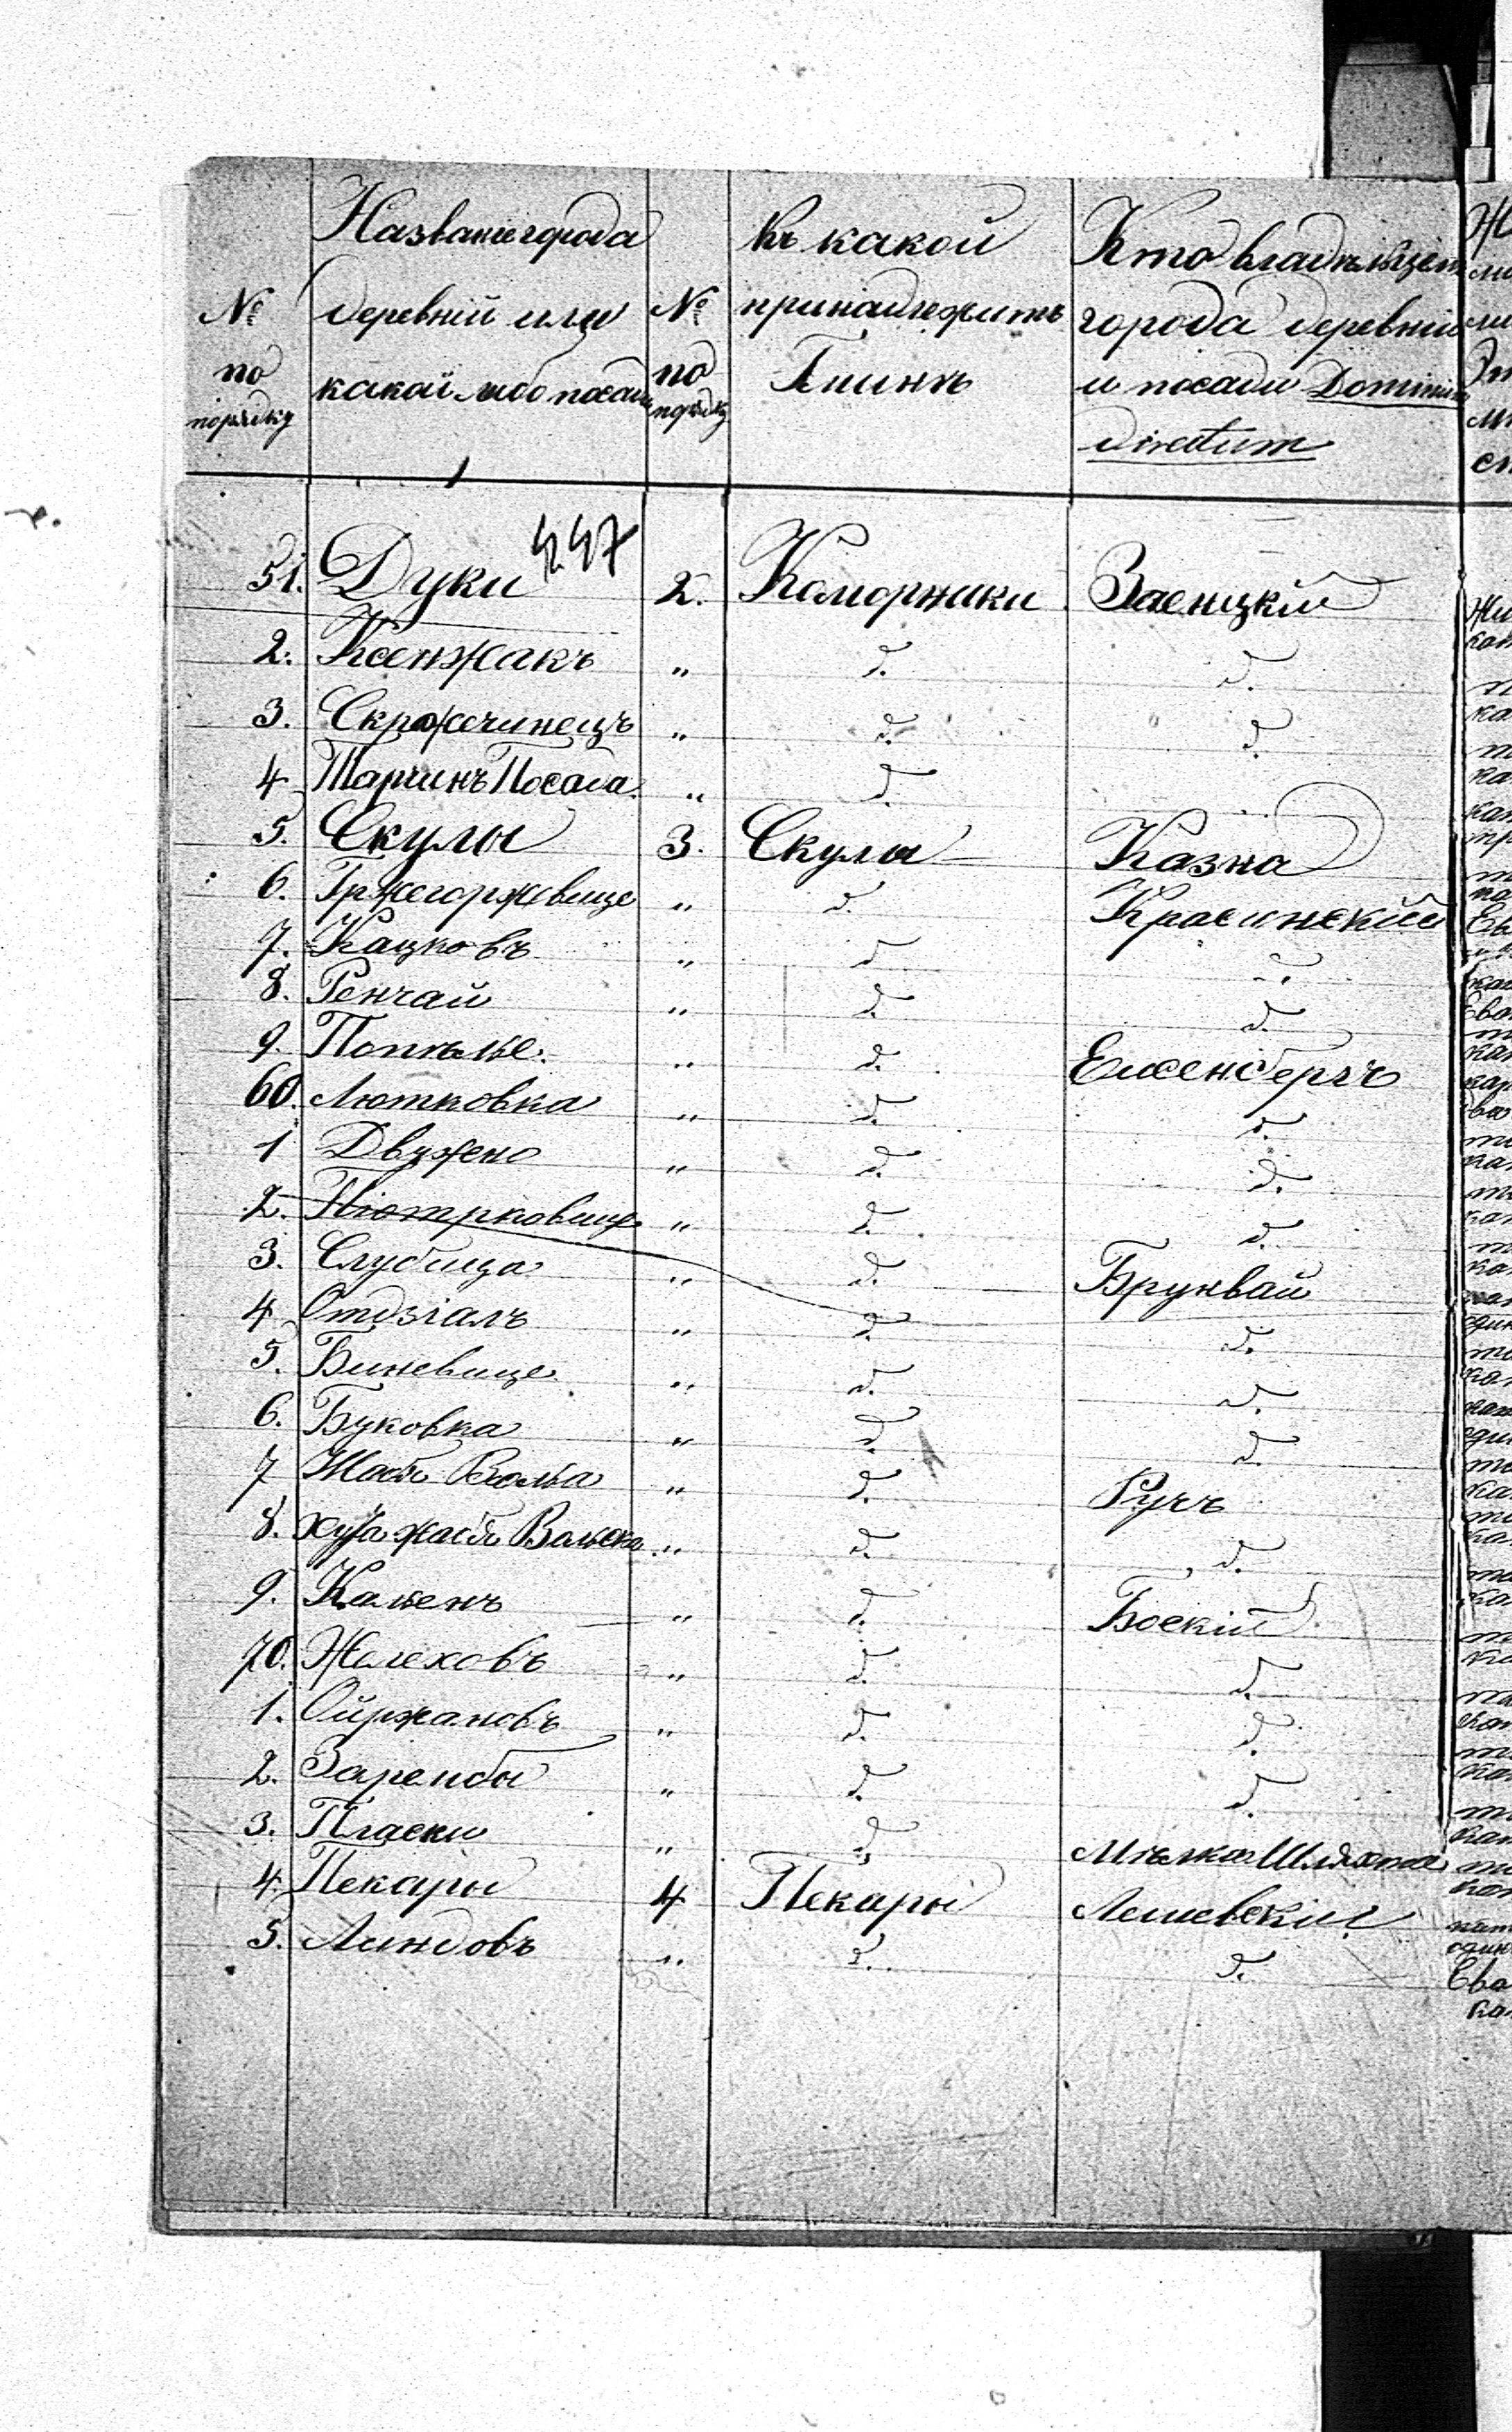 № по порядку
Названіе города деревній или какой либо посады
№ по порядку
Къ какой принадлежитъ Гминѣ
Кто владѣльцемъ города деревній и посады Dominium directum
447
51. Дуки 2. Коморники Заенцкій
2. Ксенжакъ " д. д.
3. Скржечинецъ " д. д.
4 Тарчинъ Посада " д.
5. Скулы 3. Скулы Казна
6. Гржегоржевице " д. Красинскій
7. Кацковъ " д. д.
8. Ренчай " д. д.
9. Попѣлье. " д. Ейсенбергъ
60. Лютковка " д. д.
1 Двужено " д. д.
2. Піотрковице " д. д.
3. Слубица " д. Брунвай
4 Отдзіалъ " д. д.
5. Биневице. " д. д.
6. Буковка " д. д.
7 Жабя Воля " д. Русъ
8. Жабя Вольска " д. д.
9. Каленъ " д. Боскій
70. Желеховъ " д. д.
1. Ойржановъ " д. д.
2. Зарембы " д. д.
3. Пласки " д. Мѣлкая Шляхта
4. Пекары 4 Пекары Лешевскій
5. Линдовъ " д. д.